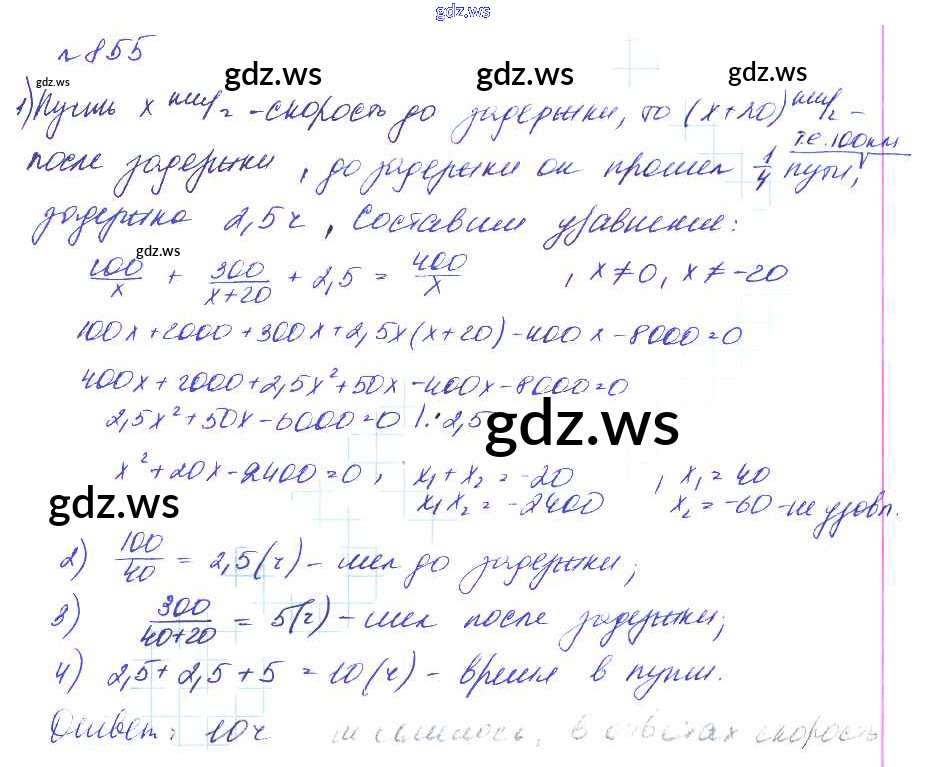 gdz.ws
№ 855
gdz.ws gdz.ws gdz.ws
1) Пусть x миг/г - скорость до задержки, то (x+20) миг/г -
т.е. 100км
после задержки, до задержки он прошел 1/4 пути,
задержка 2,5ч, Составим уравнение:
gdz.ws
100/x + 300/(x+20) + 2,5 = 400/x , x ≠ 0, x ≠ -20
100x+2000+300x+2,5x(x+20)-400x-8000=0
400x+2000+2,5x²+50x-400x-8000=0
2,5x²+50x-6000=0 |:2,5
gdz.ws
x²+20x-2400=0, x₁+x₂=-20 , x₁=40
gdz.ws
x₁x₂=-2400 x₂=-60-не удовл.
2) 100/40 = 2,5(ч) - шел до задержки;
gdz.ws
3) 300/(40+20) = 5(ч) - шел после задержки;
4) 2,5+2,5+5=10(ч) - время в пути.
Ответ: 10ч не сошлось, в ответах скорость